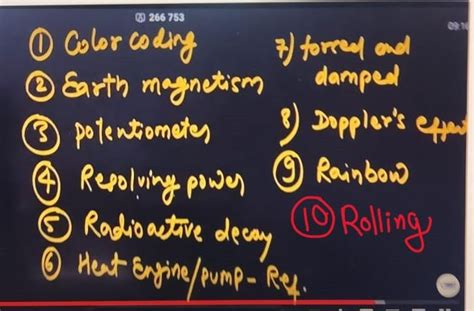 266 753
09:16
① Color coding
② Earth magnetism
③ Potentiometer
④ Resolving power
⑤ Radioactive decay
⑥ Heat Engine/pump - Ref.
7) forced and
damped
8) Doppler's effect
⑨ Rainbow
⑩ Rolling